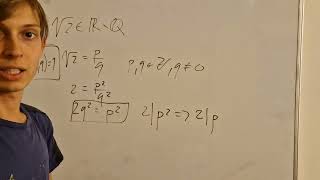 √2 ∈ ℝ∖ℚ
)=1 √2 = p/q p, q ∈ ℤ, q ≠ 0
2 = p²/q²
2q² = p² 2|p² => 2|p